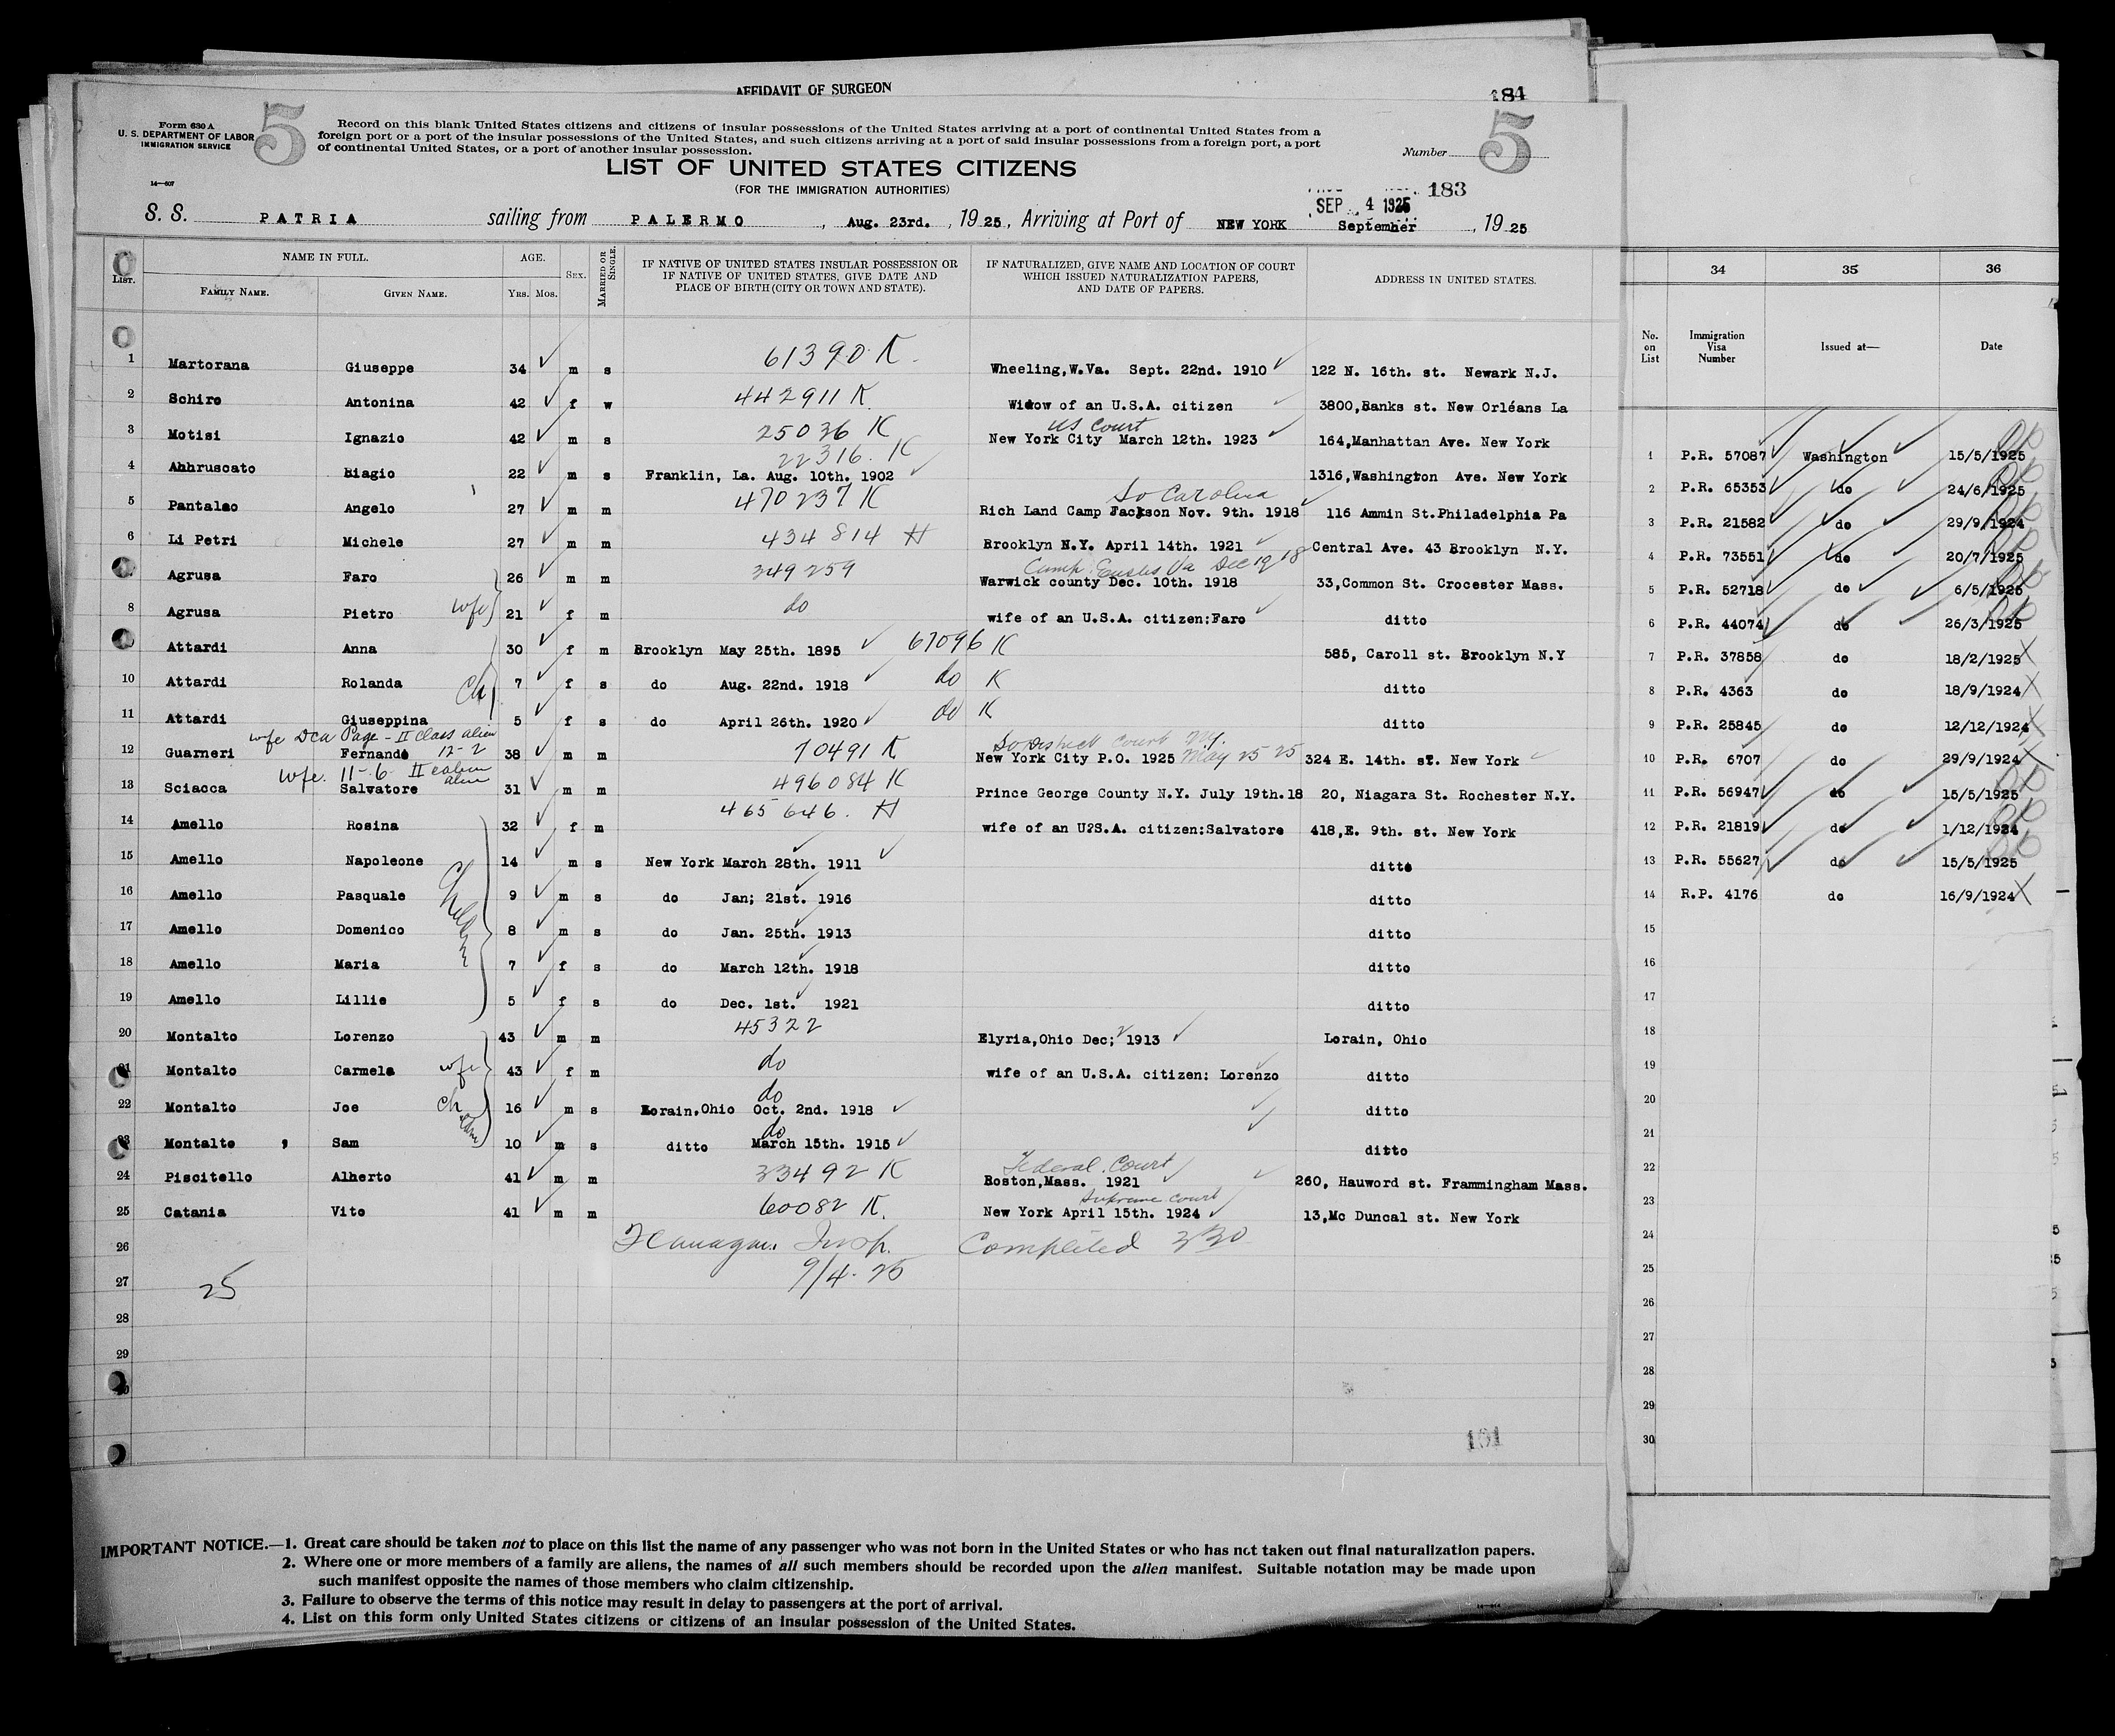 AFFIDAVIT OF SURGEON
184
Form 630 A
U. S. DEPARTMENT OF LABOR
IMMIGRATION SERVICE
5
Record on this blank United States citizens and citizens of insular possessions of the United States arriving at a port of continental United States from a
foreign port or a port of the insular possessions of the United States, and such citizens arriving at a port of said insular possessions from a foreign port, a port
of continental United States, or a port of another insular possession.
Number 5
LIST OF UNITED STATES CITIZENS
(FOR THE IMMIGRATION AUTHORITIES)
14—607
183
SEP 4 1925
S. S. PATRIA sailing from PALERMO, Aug. 23rd., 1925, Arriving at Port of NEW YORK September, 1925
LIST. NAME IN FULL. AGE. SEX. MARRIED OR SINGLE. IF NATIVE OF UNITED STATES INSULAR POSSESSION OR IF NATIVE OF UNITED STATES, GIVE DATE AND PLACE OF BIRTH (CITY OR TOWN AND STATE). IF NATURALIZED, GIVE NAME AND LOCATION OF COURT WHICH ISSUED NATURALIZATION PAPERS, AND DATE OF PAPERS. ADDRESS IN UNITED STATES.
FAMILY NAME. GIVEN NAME. YRS. MOS.
1 Martorana Giuseppe 34 m s 61390 K. Wheeling,W.Va. Sept. 22nd. 1910 122 N. 16th. st. Newark N.J.
2 Schiro Antonina 42 f w 442911 K Widow of an U.S.A. citizen 3800,Banks st. New Orléans La
US Court
3 Motisi Ignazio 42 m s 25036 K New York City March 12th. 1923 164,Manhattan Ave. New York
22316. K
4 Abbruscato Biagio 22 m s Franklin, La. Aug. 10th. 1902 1316,Washington Ave. New York
So Carolina
5 Pantaleo Angelo 27 m m 470237 K Rich Land Camp Jackson Nov. 9th. 1918 116 Ammin St.Philadelphia Pa
6 Li Petri Michele 27 m m 434814 H Brooklyn N.Y. April 14th. 1921 Central Ave. 43 Brooklyn N.Y.
Camp Eustis Va Dec 19 18
Agrusa Faro 26 m m 349259 Warwick county Dec. 10th. 1918 33,Common St. Crocester Mass.
8 Agrusa Pietro wife 21 f m do wife of an U.S.A. citizen:Faro ditto
Attardi Anna 30 f m Brooklyn May 25th. 1895 67096 K 585, Caroll st. Brooklyn N.Y
10 Attardi Rolanda Ch 7 f s do Aug. 22nd. 1918 do K ditto
11 Attardi Giuseppina 5 f s do April 26th. 1920 do K ditto
wfe Dca Page - II class alien 12-2
So District Court N.Y. May 25 25
12 Guarneri Fernando 38 m m 70491 K New York City P.O. 1925 324 E. 14th. st. New York
Wfe. 11-6 II cabin alien
13 Sciacca Salvatore 31 m m 496084 K Prince George County N.Y. July 19th.18 20, Niagara St. Rochester N.Y.
465646. H
14 Amello Rosina 32 f m wife of an U?S.A. citizen:Salvatore 418,E. 9th. st. New York
15 Amello Napoleone 14 m s New York March 28th. 1911 ditto
Children
16 Amello Pasquale 9 m s do Jan; 21st. 1916 ditto
17 Amello Domenico 8 m s do Jan. 25th. 1913 ditto
18 Amello Maria 7 f s do March 12th. 1918 ditto
19 Amello Lillie 5 f s do Dec. 1st. 1921 ditto
20 Montalto Lorenzo 43 m m 45322 Elyria,Ohio Dec; 1913 Lorain, Ohio
21 Montalto Carmela wfe 43 f m do wife of an U.S.A. citizen: Lorenzo ditto
do
22 Montalto Joe Ch 16 m s Lorain,Ohio Oct. 2nd. 1918 ditto
do
23 Montalto , Sam 10 m s ditto March 15th. 1915 ditto
Federal Court
24 Piscitello Alberto 41 m m 33492 K Boston,Mass. 1921 260, Hauword st. Frammingham Mass.
Supreme Court
25 Catania Vito 41 m m 60082 K. New York April 15th. 1924 13,Mc Duncal st. New York
26 Flanagan Insp. Completed 330
27 25 9/4-25
28
29
30
161
IMPORTANT NOTICE.—1. Great care should be taken not to place on this list the name of any passenger who was not born in the United States or who has not taken out final naturalization papers.
2. Where one or more members of a family are aliens, the names of all such members should be recorded upon the alien manifest. Suitable notation may be made upon
such manifest opposite the names of those members who claim citizenship.
3. Failure to observe the terms of this notice may result in delay to passengers at the port of arrival.
4. List on this form only United States citizens or citizens of an insular possession of the United States.
34 35 36
No. on List Immigration Visa Number Issued at— Date
1 P.R. 57087 Washington 15/5/1925
2 P.R. 65353 do 24/6/1925
3 P.R. 21582 do 29/9/1924
4 P.R. 73551 do 20/7/1925
5 P.R. 52718 do 6/5/1925
6 P.R. 44074 do 26/3/1925
7 P.R. 37858 do 18/2/1925 X
8 P.R. 4363 do 18/9/1924 X
9 P.R. 25845 do 12/12/1924 X
10 P.R. 6707 do 29/9/1924 X
11 P.R. 56947 do 15/5/1925
12 P.R. 21819 do 1/12/1924
13 P.R. 55627 do 15/5/1925
14 R.P. 4176 do 16/9/1924 X
15
16
17
18
19
20
21
22
23
24
25
26
27
28
29
30